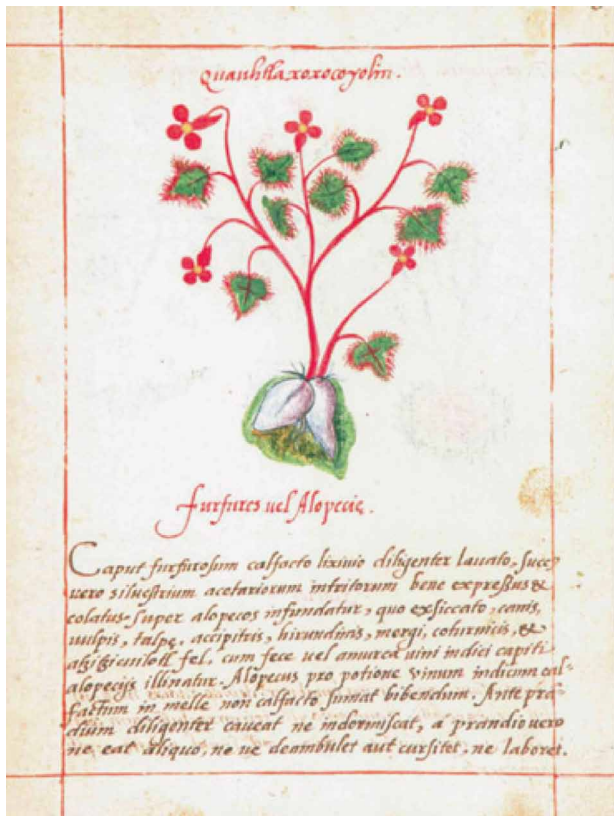 Quauhtlaxoxocoyolin.
Furfures uel Alopecię.
Caput furfurosum calfacto lixiuio diligenter lauato, succꝰ
vero siluestrium acetariorum intritorum bene expreßus &
colatus super alopecos infundatur, quo exsiccato, canis,
uulpis, talpę, accipitris, hirundinis, mergi, coturnicis, &
atzitzicuilotl fel, cum fece uel amurca uini indici capiti
alopecijs illinatur. Alopecus pro potione vinum indicum cal-
factum in melle non calfacto sumat bibendum. Ante pran-
dium diligenter caueat ne indormiscat, a prandio uero
ne eat aliquo, ne ue deambulet aut cursitet, ne laboret.